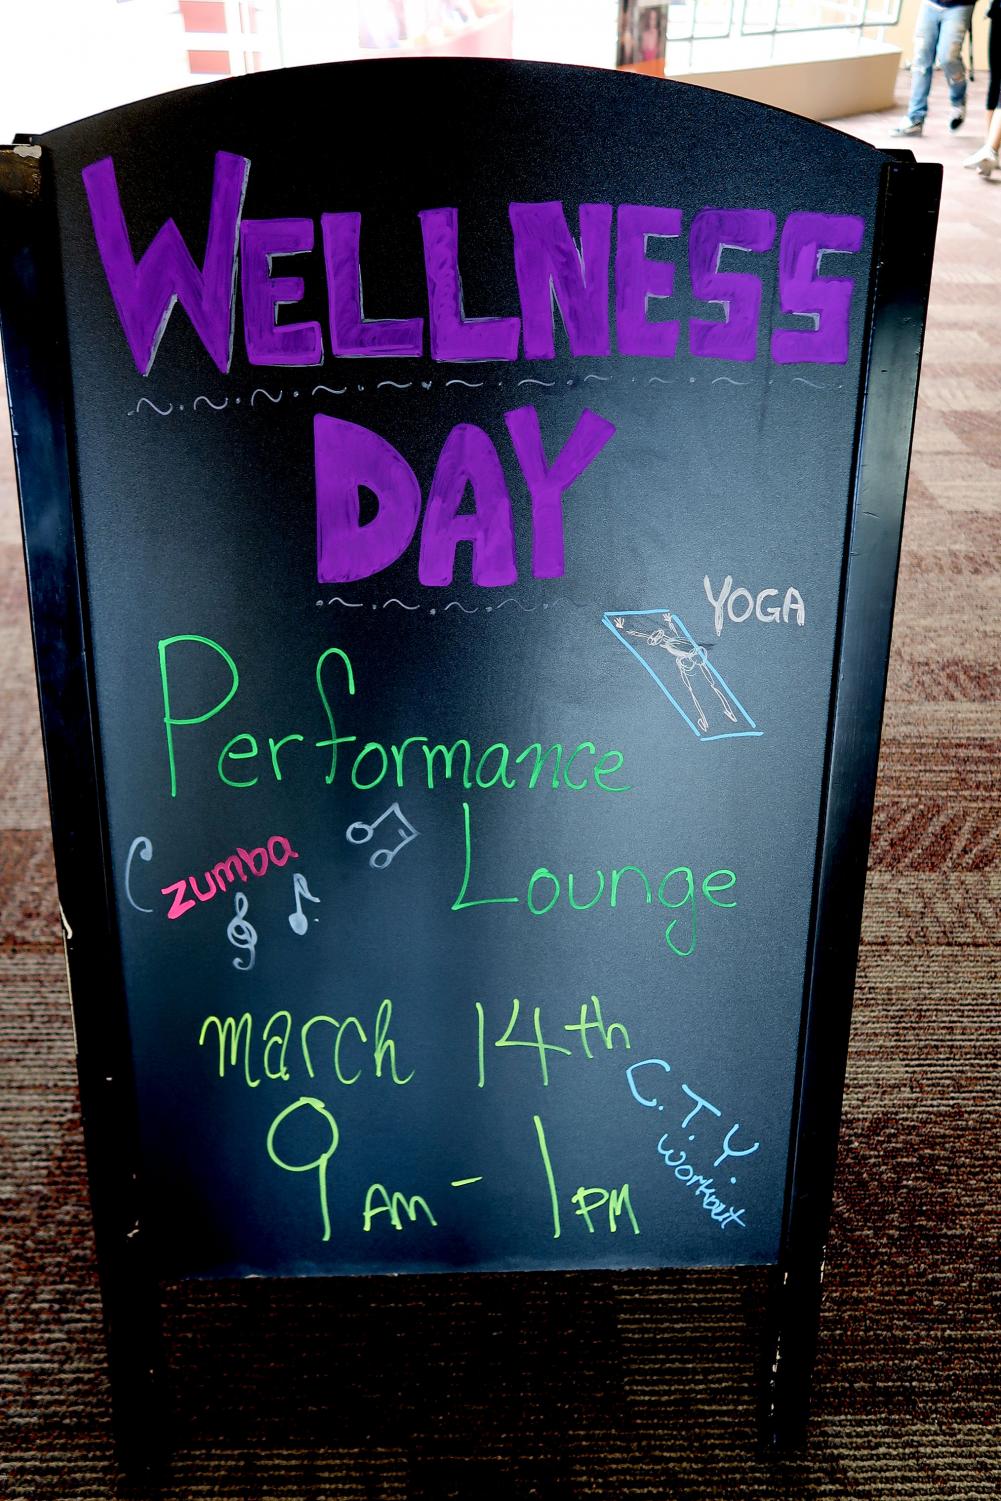 WELLNESS
DAY
YOGA
Performance
Lounge
zumba
march 14th
9 AM - 1 PM
C.T.Y.
workout